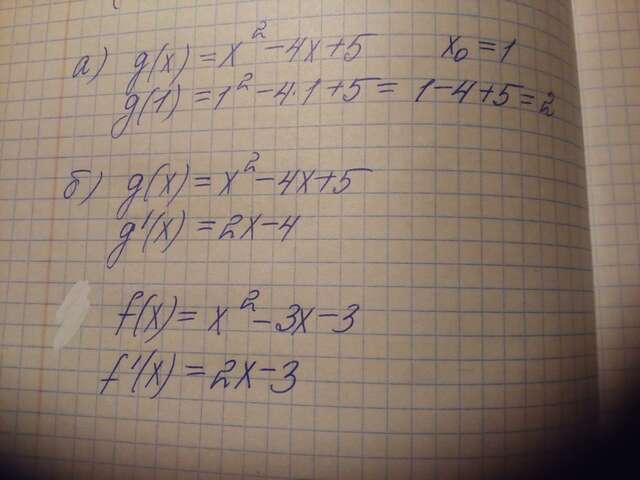 а) g(x) = x² - 4x + 5 x₀ = 1
g(1) = 1² - 4·1 + 5 = 1 - 4 + 5 = 2
б) g(x) = x² - 4x + 5
g'(x) = 2x - 4
f(x) = x² - 3x - 3
f'(x) = 2x - 3